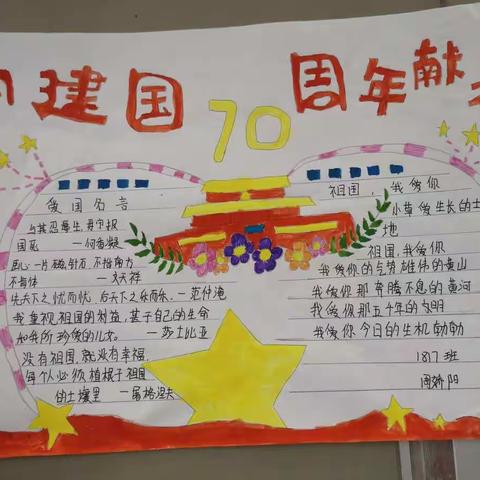 向建国70周年献
爱国名言
与其忍辱生,毋宁报
国死 —何香凝
臣心一片磁针石,不指南方
不肯休 —文天祥
先天下之忧而忧,后天下之乐而乐。—范仲淹
我重视祖国的利益,甚于自己的生命
和我所珍爱的儿女。—莎士比亚
没有祖国,就没有幸福,
每个人必须植根于祖国
的土壤里 —屠格涅夫
祖国,我爱你
小草爱生长的土
地
祖国,我爱你
我爱你的气势雄伟的黄山
我爱你那奔腾不息的黄河
我爱你那五千年的文明
我爱你今日的生机勃勃
1817班
周娇阳